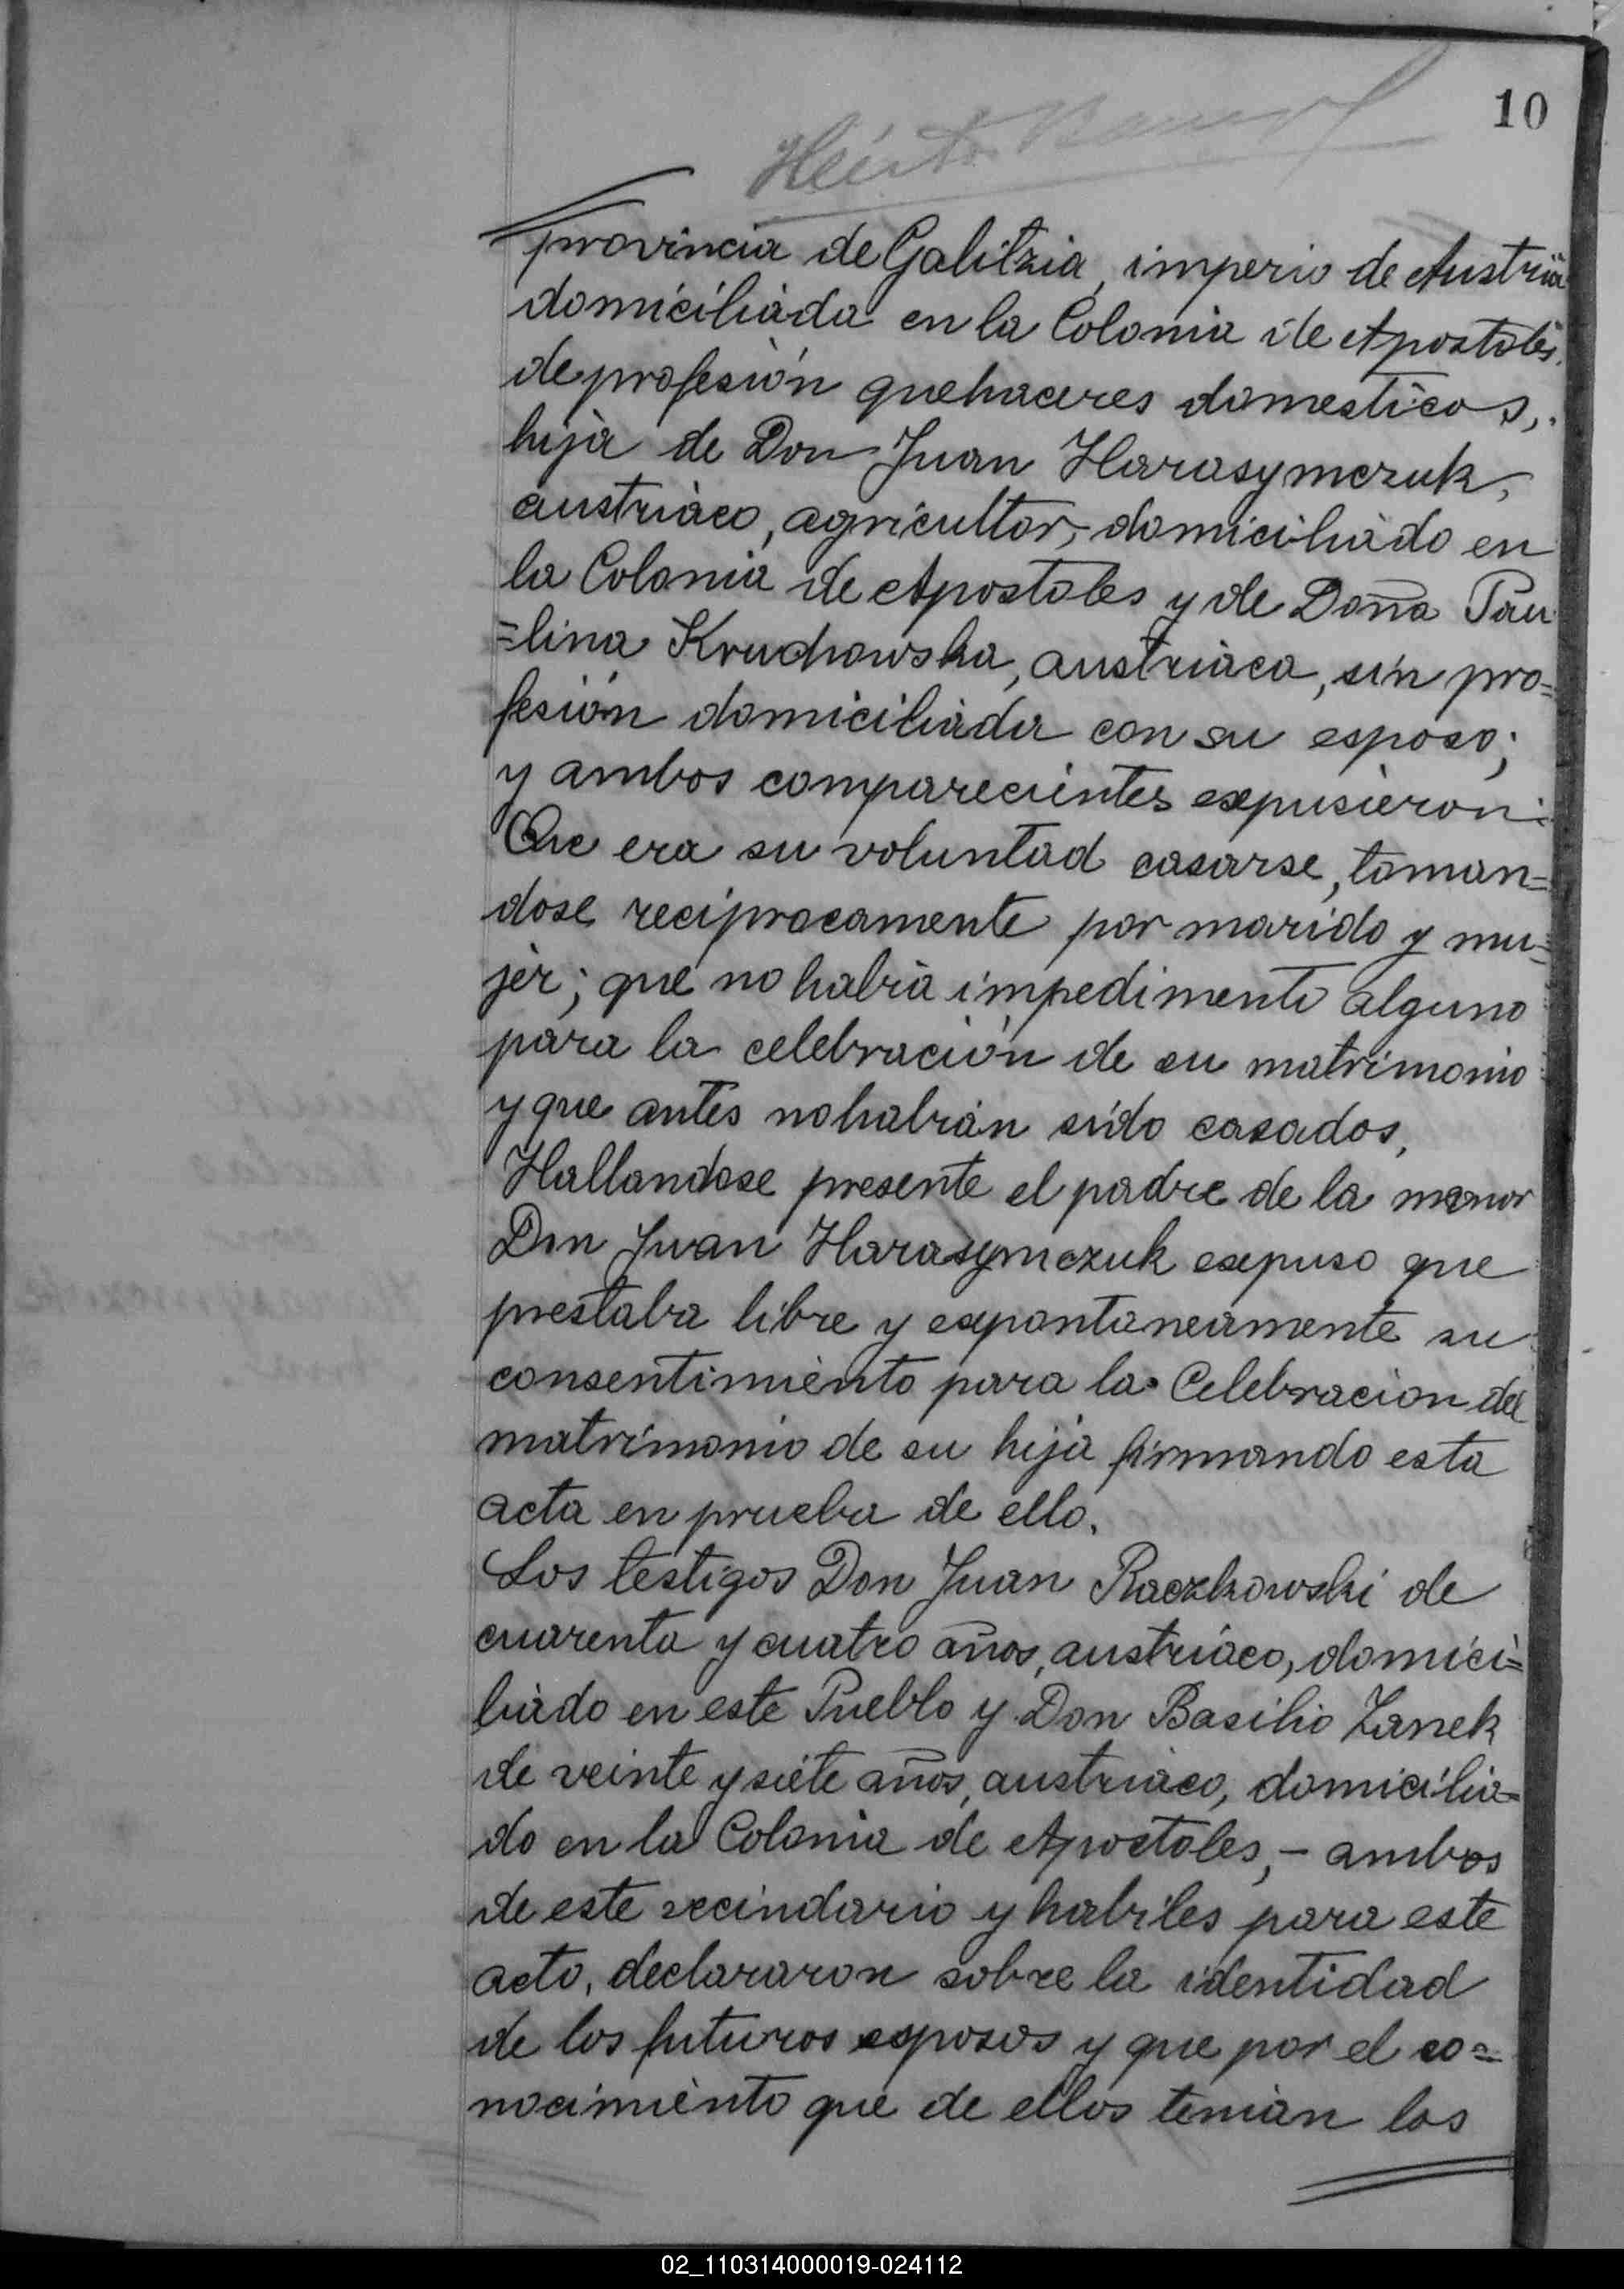 10
provincia de Galitzia, imperio de Austria
domiciliada en la Colonia de Apostoles,
de profesión quehaceres domesticos,
hija de Don Juan Harasymczuk,
austriaco, agricultor, domiciliado en
la Colonia de Apostoles y de Doña Pau
=lina Kruchowska, austriaca, sin pro=
fesión domiciliada con su esposo;
y ambos comparecientes expusieron:
Que era su voluntad casarse, toman=
dose reciprocamente por marido y mu=
jer; que no habia impedimento alguno
para la celebración de su matrimonio
y que antes no habian sido casados,
Hallandose presente el padre de la menor
Don Juan Harasymczuk expuso que
prestaba libre y expontaneamente su
consentimiento para la Celebracion del
matrimonio de su hija firmando esta
acta en prueba de ello.
Los testigos Don Juan Raczkowski de
cuarenta y cuatro años, austriaco, domici=
liado en este Pueblo y Don Basilio Zanek
de veinte y siete años, austriaco, domicilia=
do en la Colonia de Apostoles,- ambos
de este vecindario y habiles para este
acto, declararon sobre la identidad
de los futuros esposos y que por el co=
nocimiento que de ellos tenian los
02_110314000019-024112